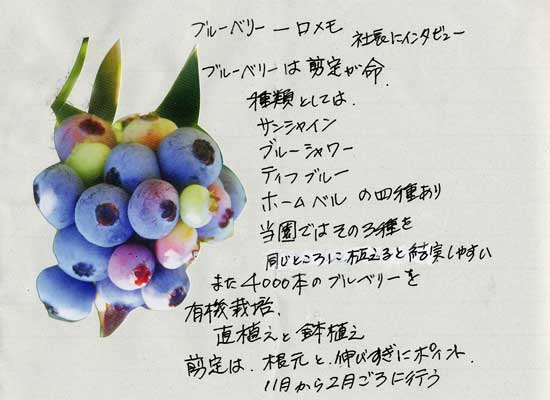 ブルーベリー一口メモ
社長にインタビュー
ブルーベリーは剪定が命.
種類としては、
サンシャイン
ブルーシャワー
ティフブルー
ホームベル の四種あり
当園ではその3種を
同じところに植えると結実しやすい
また4000本のブルベリーを
有機栽培.
直植えと鉢植え
剪定は、根元と、伸びすぎにポイント.
11月から2月ごろに行う